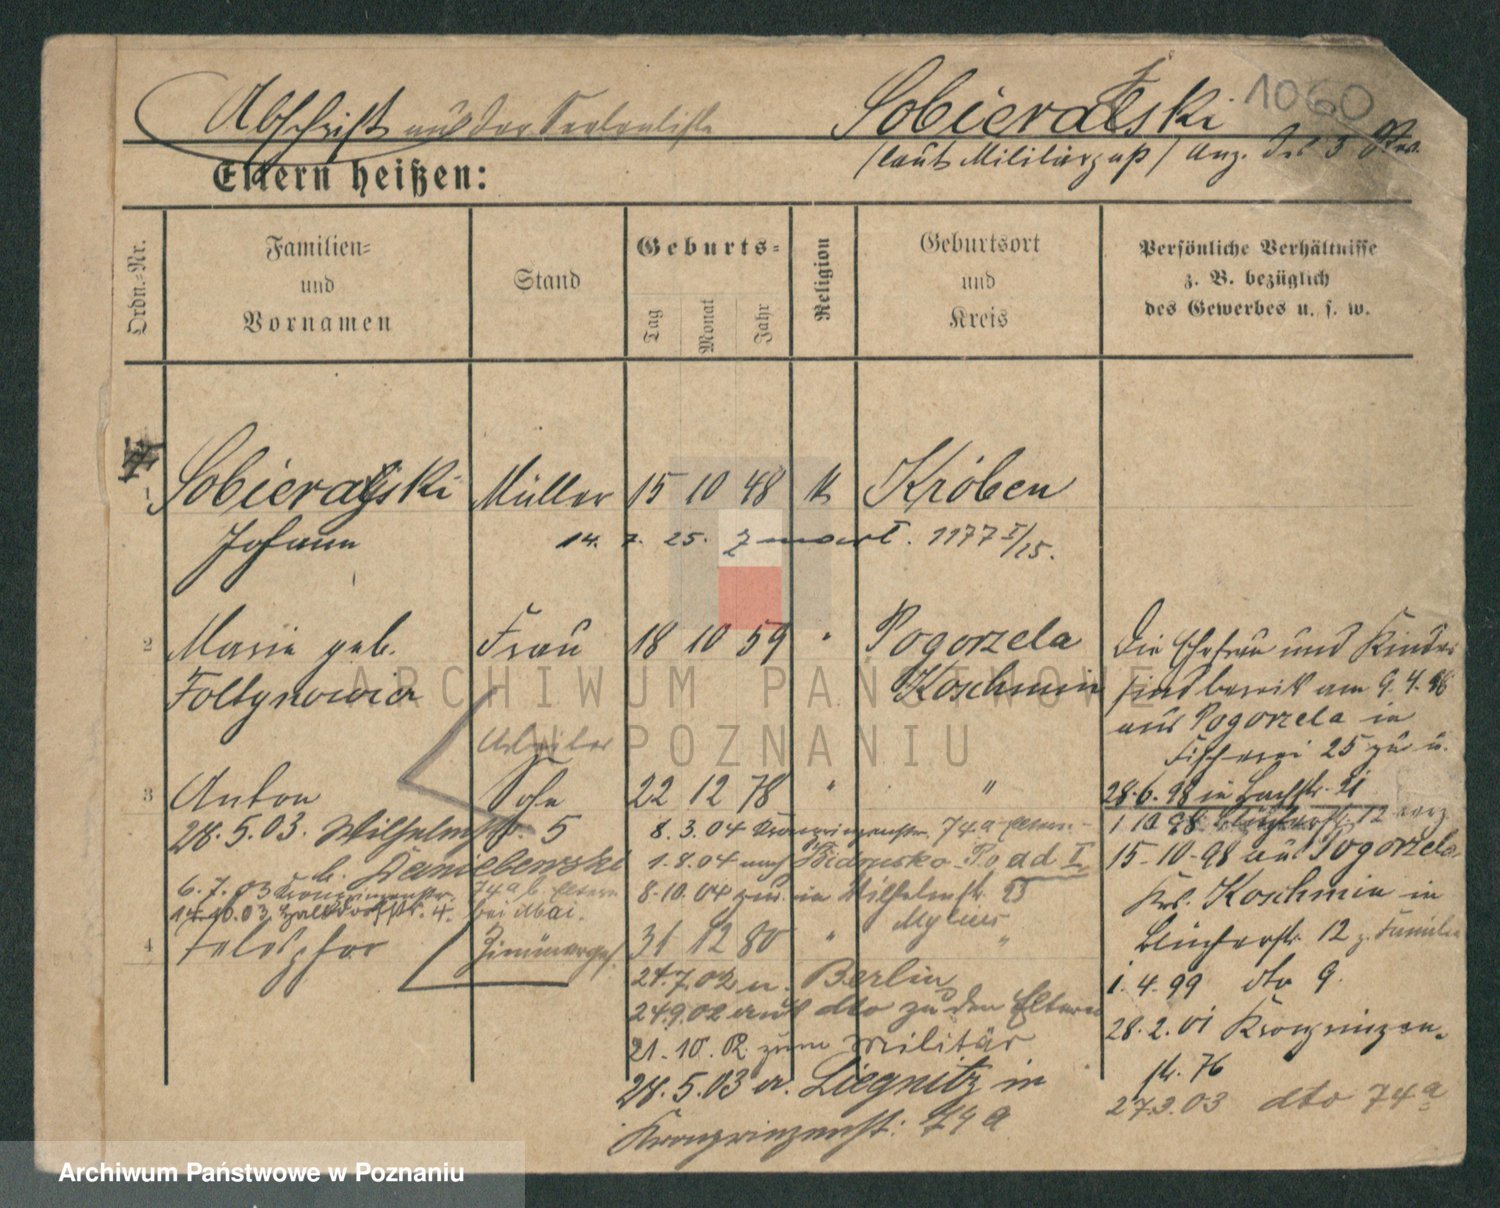 Abschrift aus der Seelenliste Sobieralski 1060
(laut Militärpaß) Anz. des 3 Rev.
Eltern heißen:
Ordn.-Nr. Familien- und Vornamen Stand Geburts- Tag Monat Jahr Religion Geburtsort und Kreis Persönliche Verhältnisse z. B. bezüglich des Gewerbes u. s. w.
1 Sobieralski Müller 15 10 48 k Kröben
Johann 14. 7. 25. 1177 I/25.
2 Marie geb. Frau 18 10 59 " Pogorzela Die Ehefrau und Kinder
Foltynowicz Koschmin sind bereits am 9.4.98
aus Pogorzela in
Arbeiter Fischerei 25 zu u.
3 Anton Sohn 22 12 78 " " 28.6.98 in Bachstr. 21
28.5.03. Wilhelmstr. 5 8.3.04 Kronprinzenstr. 74a Eltern 1 10 98 Blücherstr. 12 verz
b. Danielewski 1.8.04 nach Biedrusko Po ad I 15-10-98 aus Pogorzela
6.7.03 Kronprinzenstr. 74a b. Eltern 8.10.04 zur. in Wilhelmstr. 25 Krs. Koschmin in
14.10.03 Halldorfstr. 4. bei Mai. Mylius
4 Teldsphor Zimmerges. 31 12 80 " " Blücherstr. 12 z. Familie
24.7.02 n. Berlin 1.4.99 dto 9.
24.9.02 aus dto zu den Eltern 28.2.01 Kronprinzen-
21.10.02 zum Militär str. 76
28.5.03 a. Liegnitz in 27.3.03 dto 74a
Kronprinzenstr. 74a
ARCHIWUM PAŃSTWOWE
W POZNANIU
Archiwum Państwowe w Poznaniu